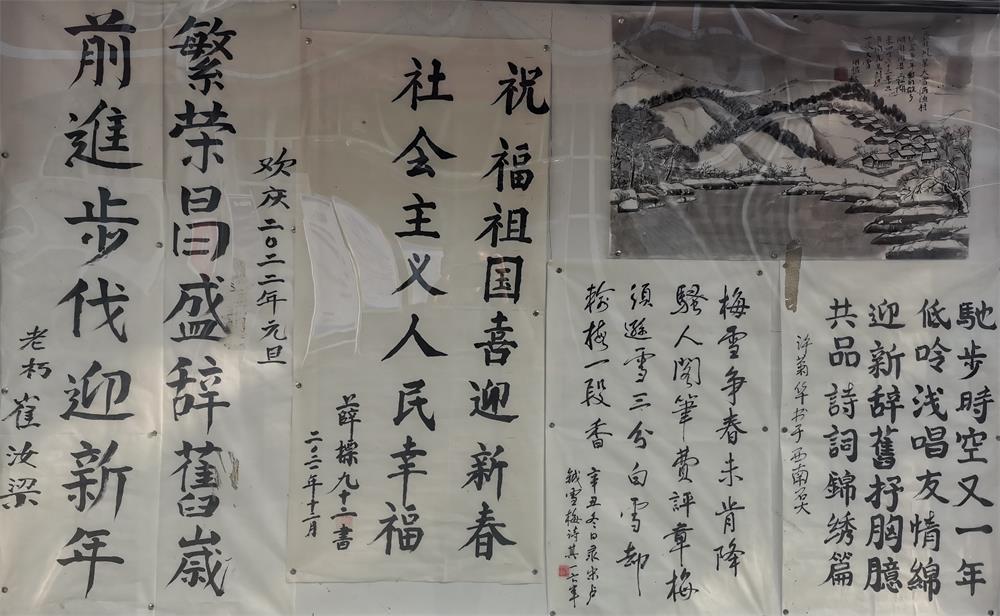 馳步時空又一年
低吟浅唱友情綿
迎新辞舊抒胸臆
共品詩詞錦绣篇
许菊华书于西南
梅雪争春未肯降
騷人阁筆費評章梅
須遜雪三分白雪却
輸梅一段香
辛丑冬日录宋卢
钺雪梅诗其一
祝福祖国喜迎新春
社会主义人民幸福
薛樑九十二書
二〇二一年十二月
欢庆二〇二二年元旦
繁荣昌盛辞舊歲
前進步伐迎新年
老朽崔汝梁